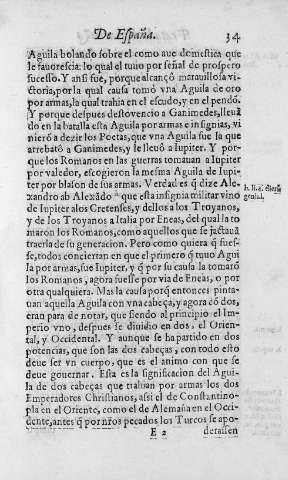 De España. 34
Aguila bolando sobre el como aue domestica que
le fauorescia: lo qual el tuuo por señal de prospero
sucesso. Y ansi fue, porque alcançò marauillosa vi-
ctoria, por la qual causa tomò vna Aguila de oro
por armas, la qual trahia en el escudo, y en el pendõ.
Y porque despues destovencio a Ganimedes, lleuã
do en la batalla esta Aguila por armas e insignias, vi
nierõ a dezir los Poetas, que vna Aguila fue la que
arrebatò a Ganimedes, y le lleuô a Iupiter. Y por-
que los Romanos en las guerras tomauan a Iupiter
por valedor, escogieron la mesma Aguila de Iupi-
ter por blason de sus armas. Verdad es q̃ dize Ale-
xandro ab Alexãdo que esta insignia militar vino
de Iupiter a los Cretenses, y dellos a los Troyanos,
y de los Troyanos a Italia por Eneas, del qual la to
maron los Romanos, como aquellos que se jactauã
traerla de su generacion. Pero como quiera q̃ fues-
se, todos conciertan en que el primero q̃ tuuo Agui
la por armas, fue Iupiter, y q̃ por su causa la tomarõ
los Romanos, agora fuesse por via de Eneas, o por
otra qualquiera. Mas la causa porq̃ entonces pinta-
uan aquella Aguila con vna cabeça, y agora cõ dos,
eran para de notar, que siendo al principio el Im-
perio vno, despues se diuidio en dos, el Orien-
tal, y Occidental. Y aunque se ha partido en dos
potencias, que son las dos cabeças, con todo esto
deue ser vn cuerpo, que es el animo con que se
deue gouernar. Esta es la significacion del Agui
la de dos cabeças que trahian por armas los dos
Emperadores Christianos, assi el de Constantino-
pla en el Oriente, como el de Alemaña en el Occi-
dente, antes q̃ por nr̃os pecados los Turcos se apo-
E 2 derassen
genial.